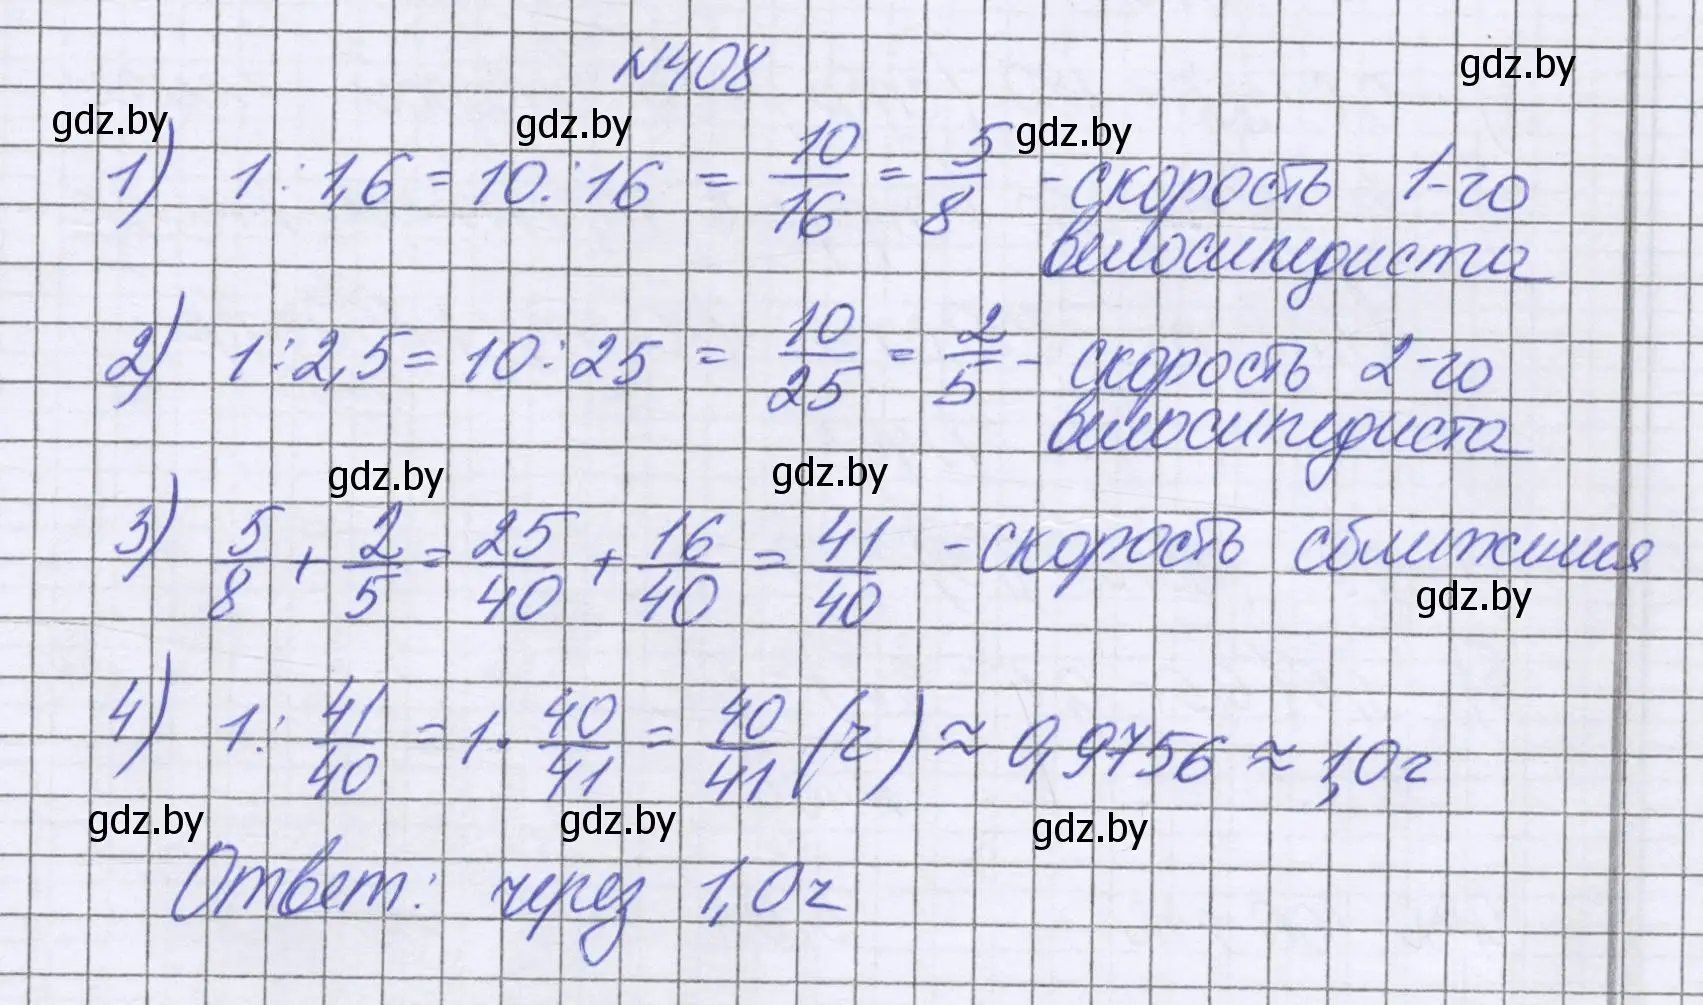 №408
gdz.by
gdz.by gdz.by gdz.by
1) 1 : 1,6 = 10 : 16 = 10/16 = 5/8 - скорость 1-го
велосипедиста
2) 1 : 2,5 = 10 : 25 = 10/25 = 2/5 - скорость 2-го
велосипедиста
gdz.by gdz.by
3) 5/8 + 2/5 = 25/40 + 16/40 = 41/40 - скорость сближения
gdz.by
4) 1 : 41/40 = 1 · 40/41 = 40/41 (ч) ≈ 0,9756 ≈ 1,0 ч
gdz.by gdz.by gdz.by
Ответ: через 1,0 ч